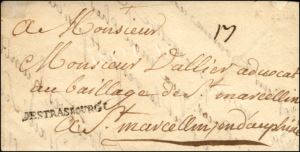 a Monsieur
17
Monsieur Vallier advocat
au bailliage de St. marcellin
DE STRASBOURG
a St. marcellin en dauphiné